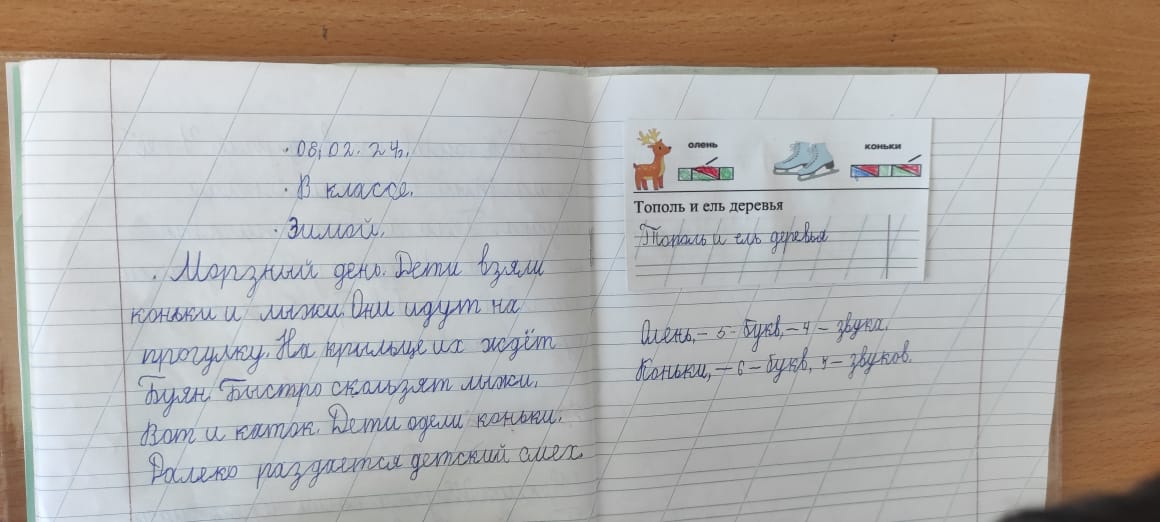 08.02.24г.
В классе.
Зимой.
Морзный день. Дети взяли
коньки и лыжи. Они идут на
прогулку. На крыльце их ждёт
Буян. Быстро скользят лыжи.
Вот и каток. Дети одели коньки.
Далеко раздается детский смех.
олень
коньки
Тополь и ель деревья
Тополь и ель деревья
Олень, – 5 – букв, – 4 – звука.
Коньки, – 6 – букв, 5 – звуков.